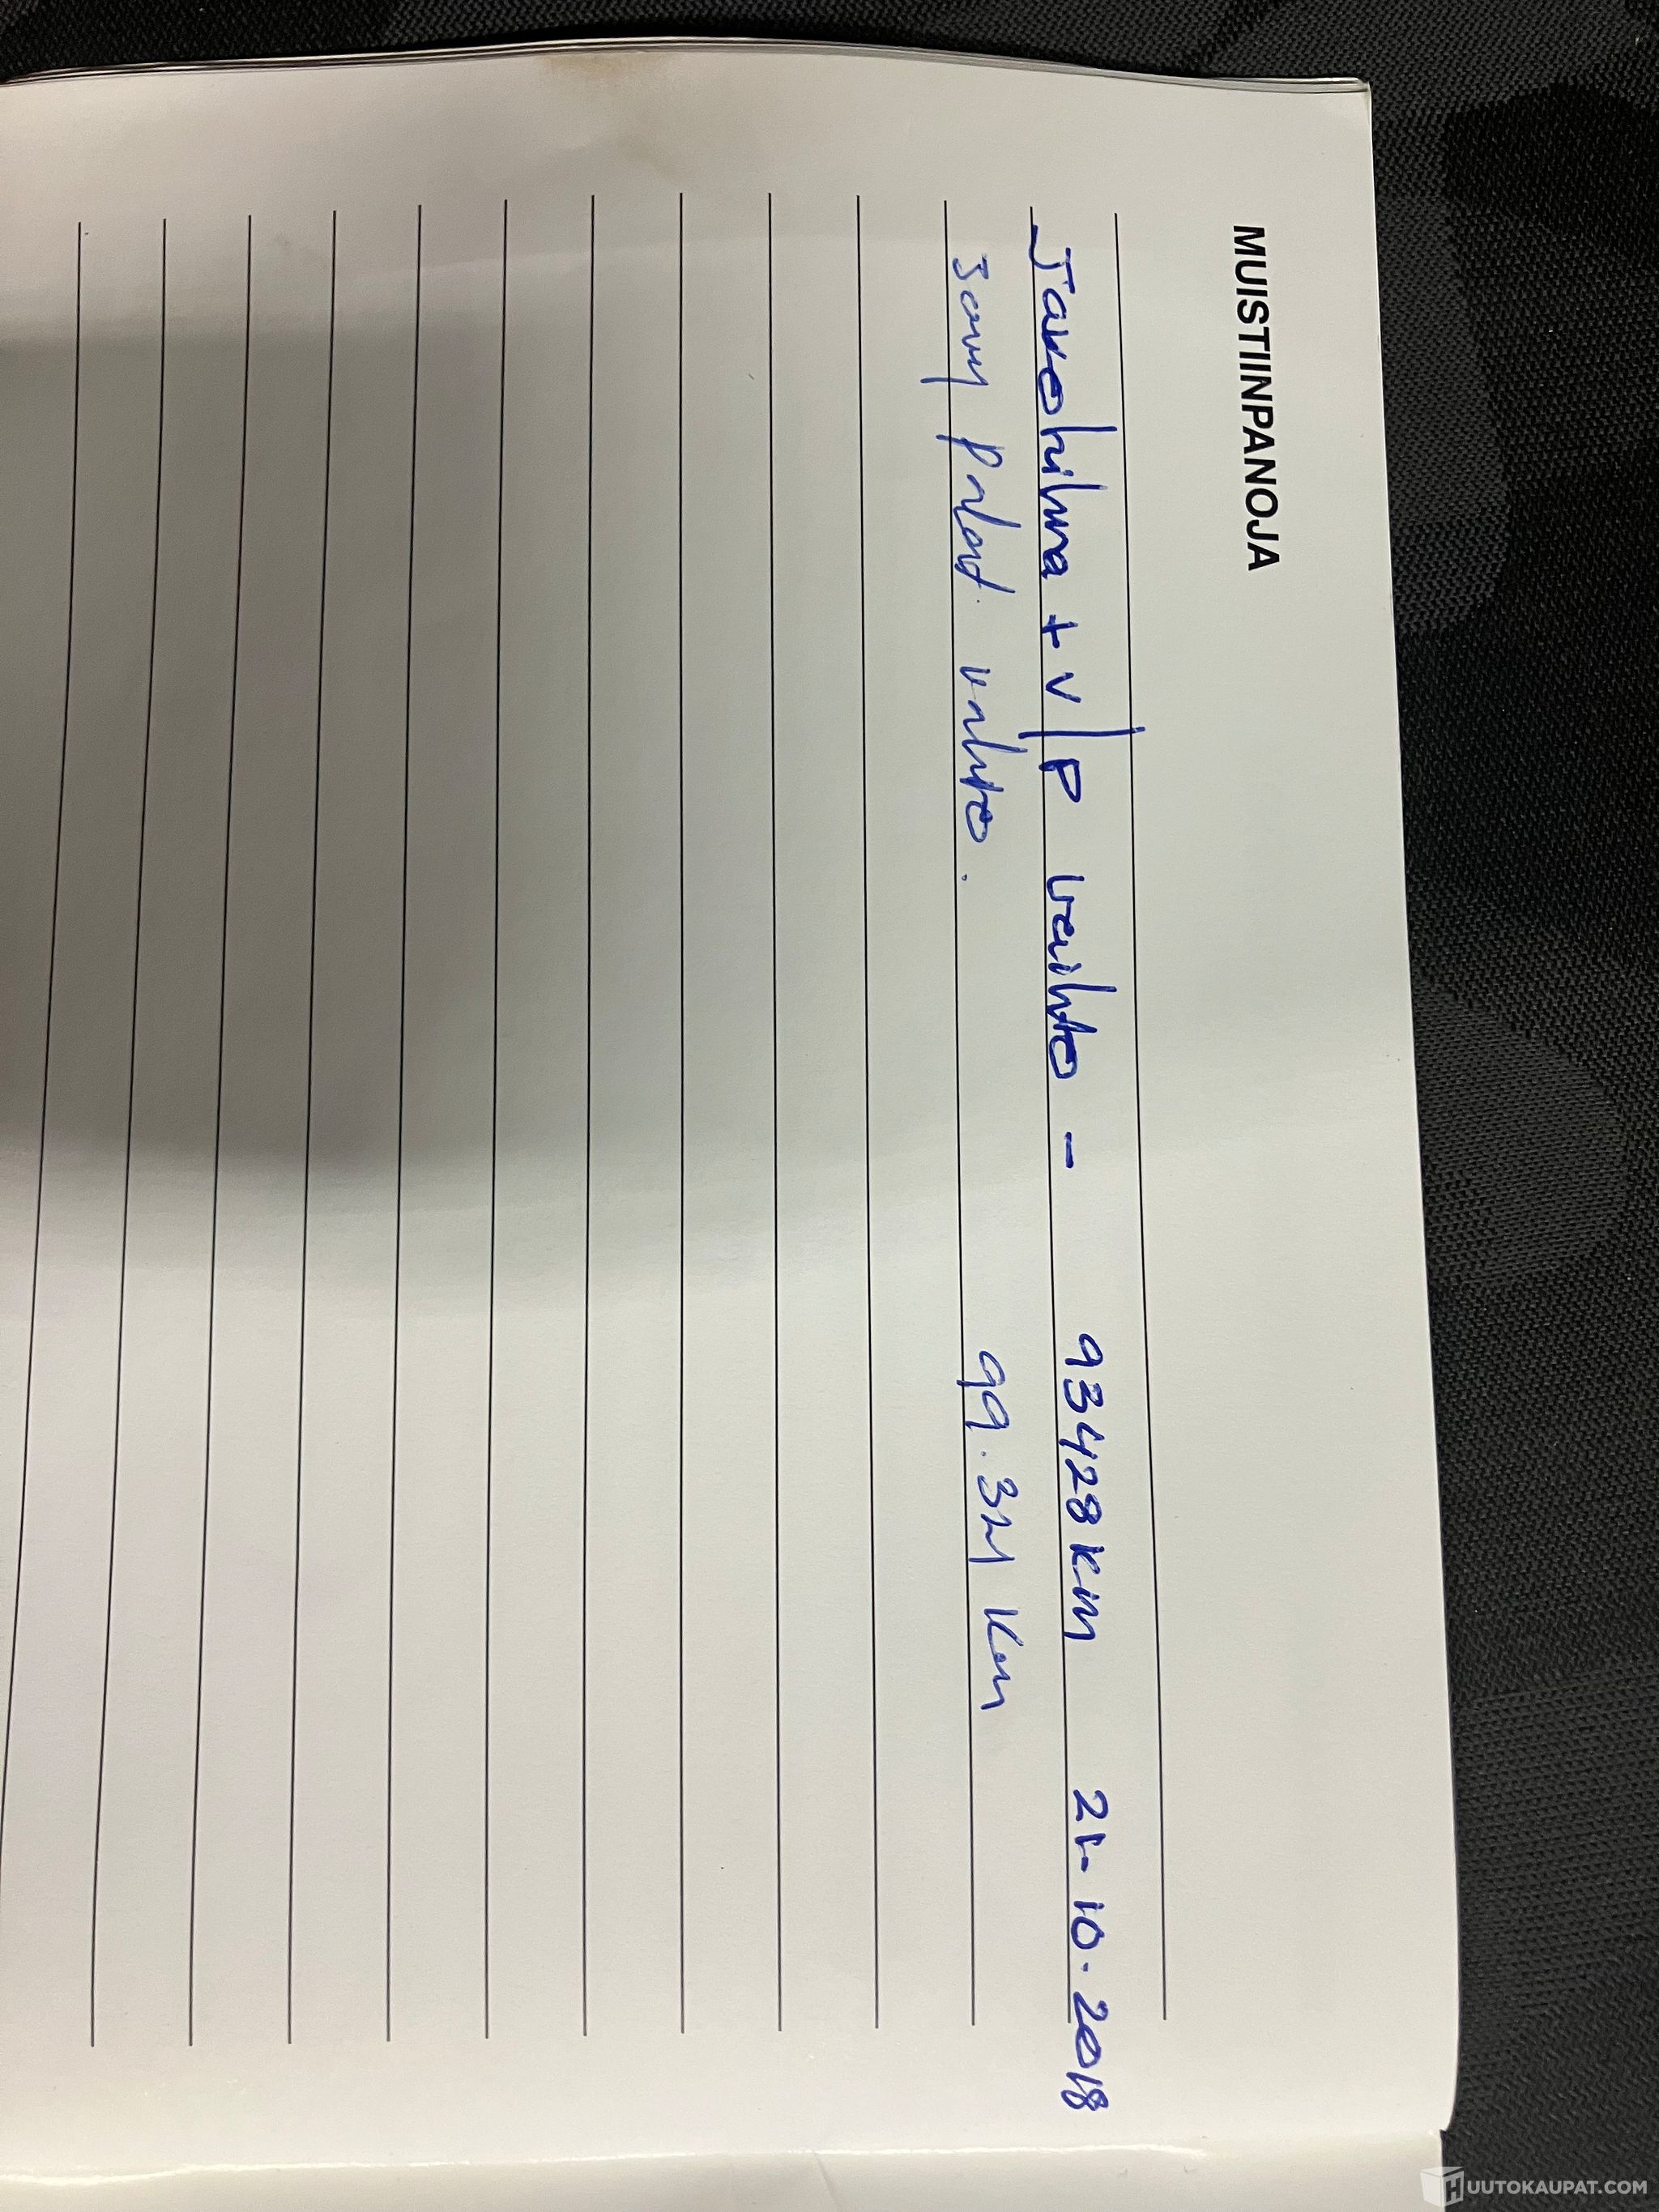 MUISTIINPANOJA
Jakohihna + v/p vaihto - 93428 km 21.10.2018
Jarru palat vaihto. 99.321 Km
HUUTOKAUPAT.COM